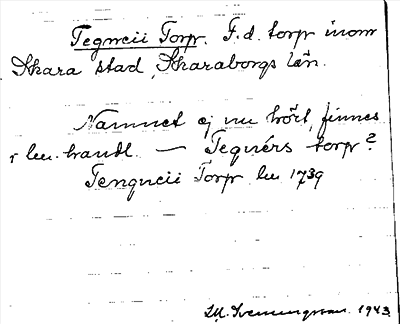 Tegneii Torp. F.d. torp inom
Skara stad, Skaraborgs län.
Namnet ej nu hört, finnes
i lm. handl. — Tegnérs torp?
Tengneii Torp lm 1739
M. Svenungsson. 1943